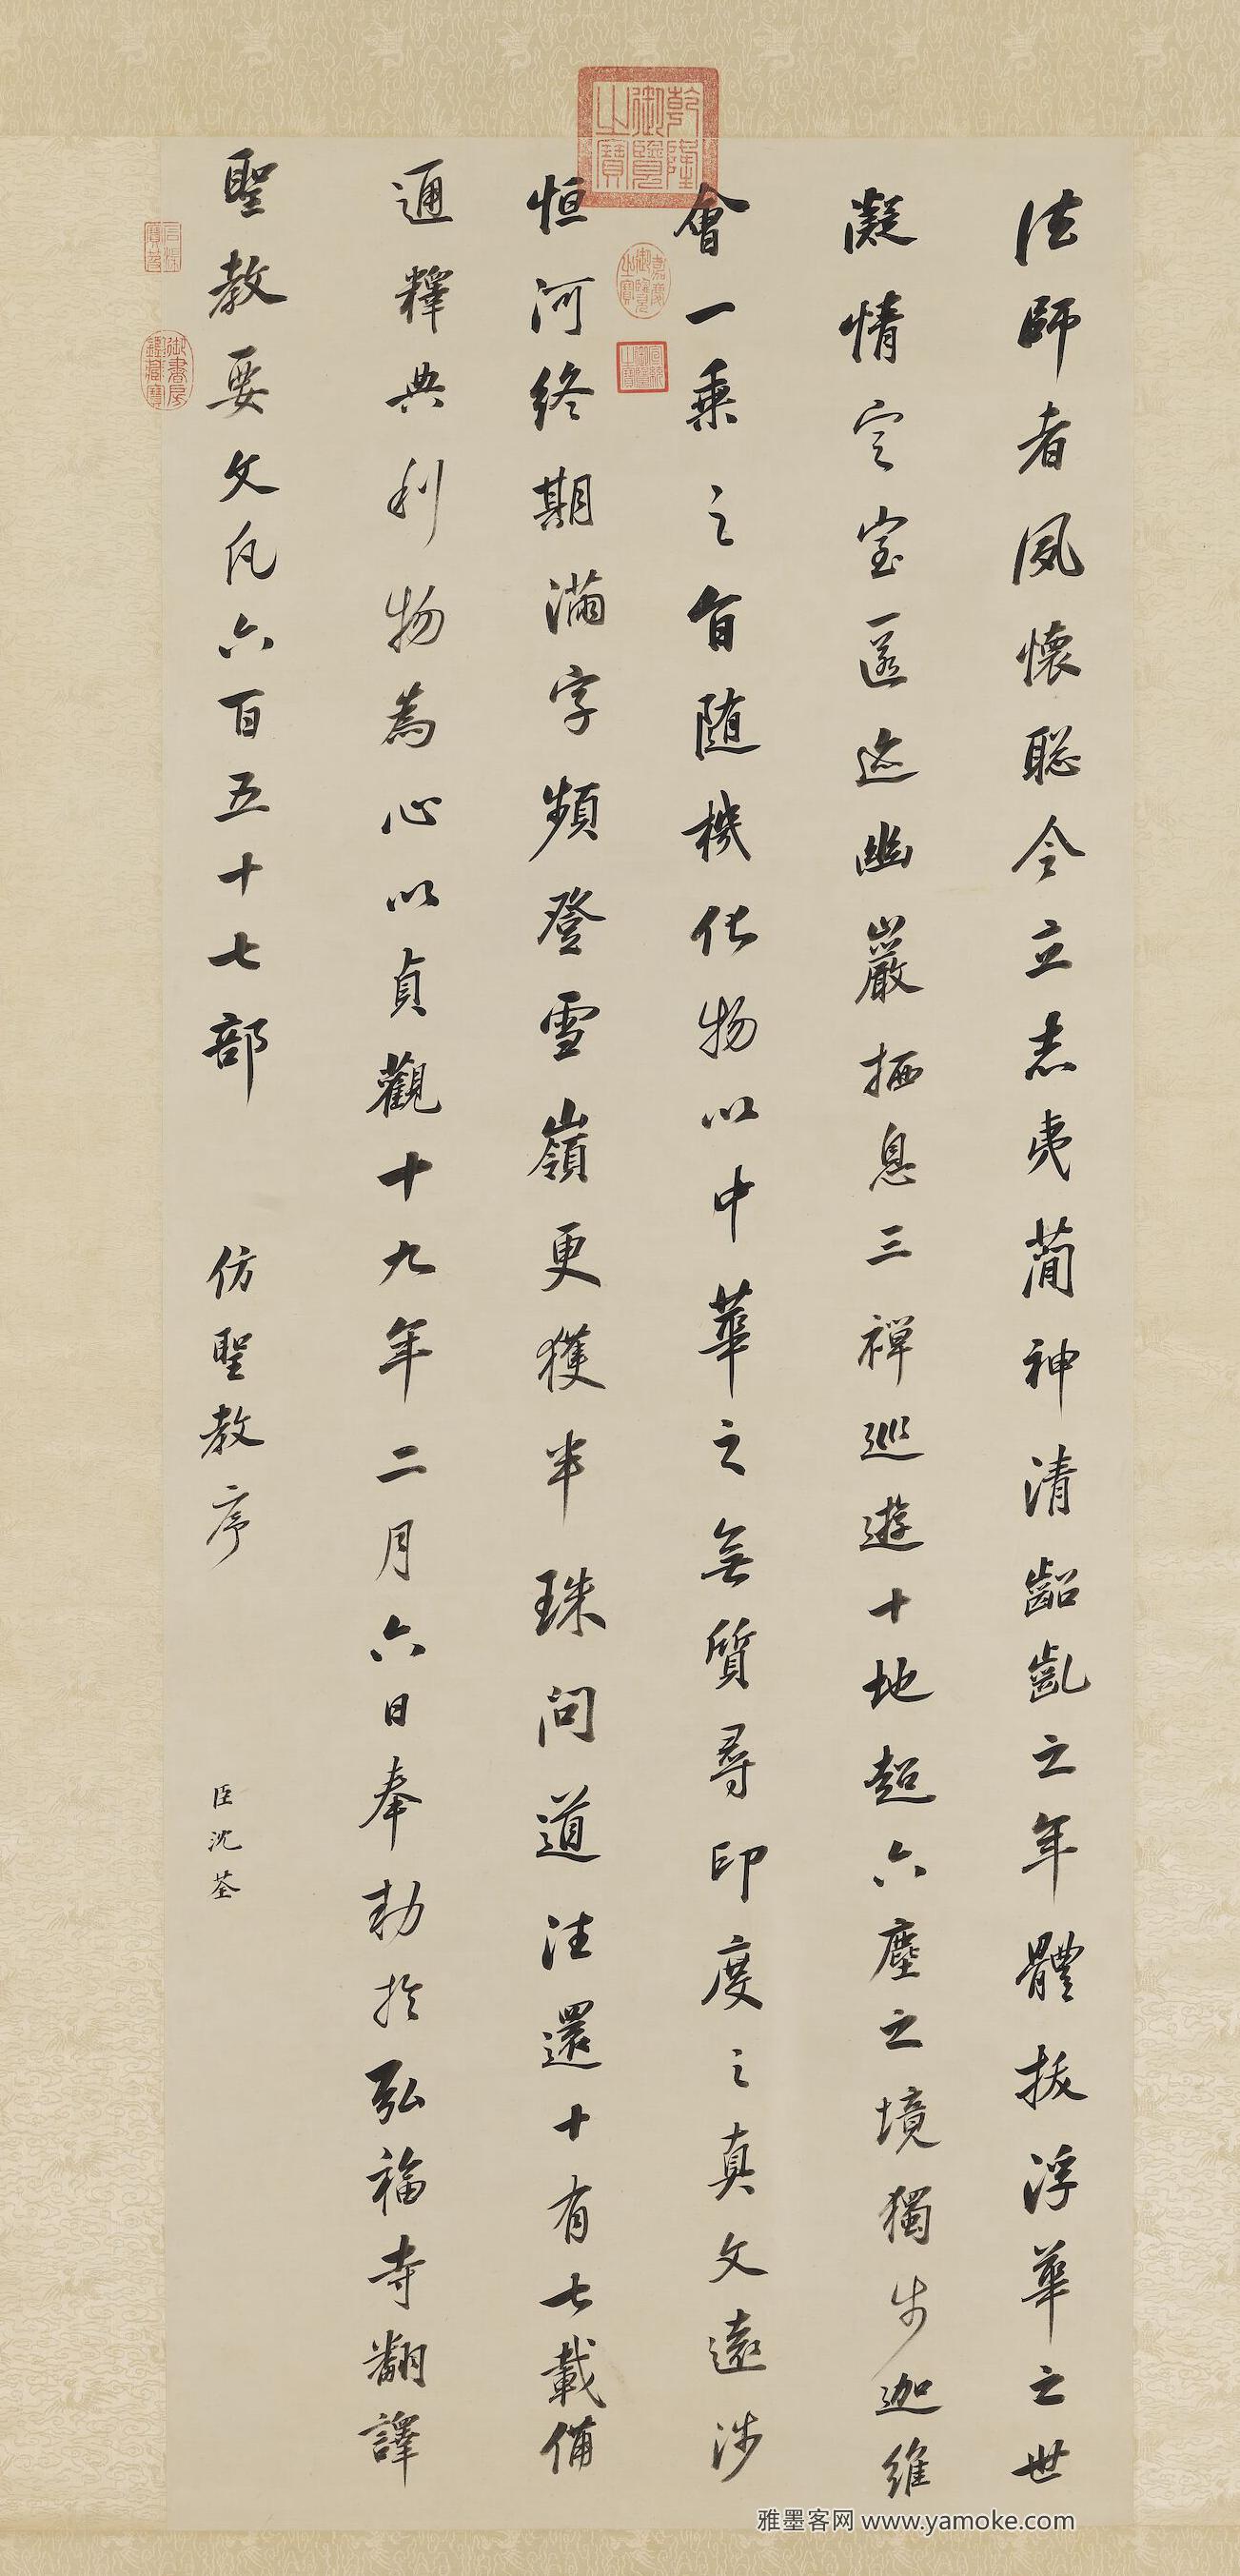 法師者夙懷聡令立志夷簡神清齠齔之年體拔浮華之世
凝情定室匿迹幽巖栖息三禪巡遊十地超六塵之境獨步迦維
會一乘之旨随機化物以中華之無質尋印度之真文遠涉
恒河終期滿字頻登雪嶺更獲半珠問道往還十有七載備
通釋典利物為心以貞觀十九年二月六日奉勅於弘福寺翻譯
聖教要文凡六百五十七部
仿聖教序
臣沈荃
乾隆御覽之寶
嘉慶御覽之寶
宣統御覽之寶
石渠寶笈
御書房鑑藏寶
雅墨客网 www.yamoke.com